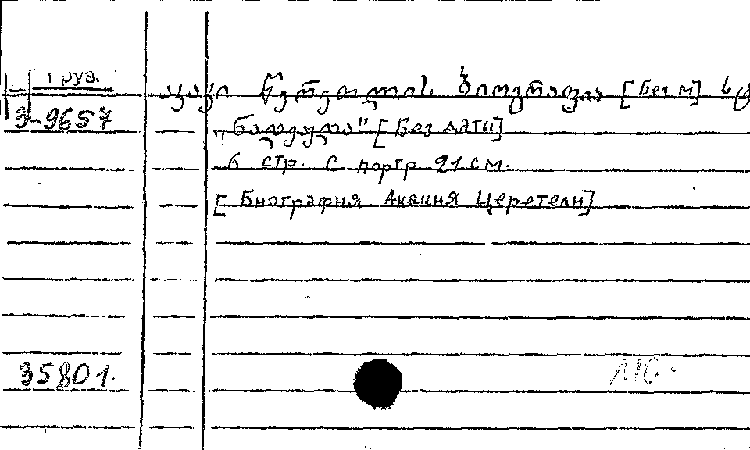 1 груз.
3-9657
აკაკი წერეთლის ბიოგრაფია [Без м]
„ნაკადული" [Без даты]
6 стр. с портр 21 см.
[Биография Акакия Церетели]
35801.